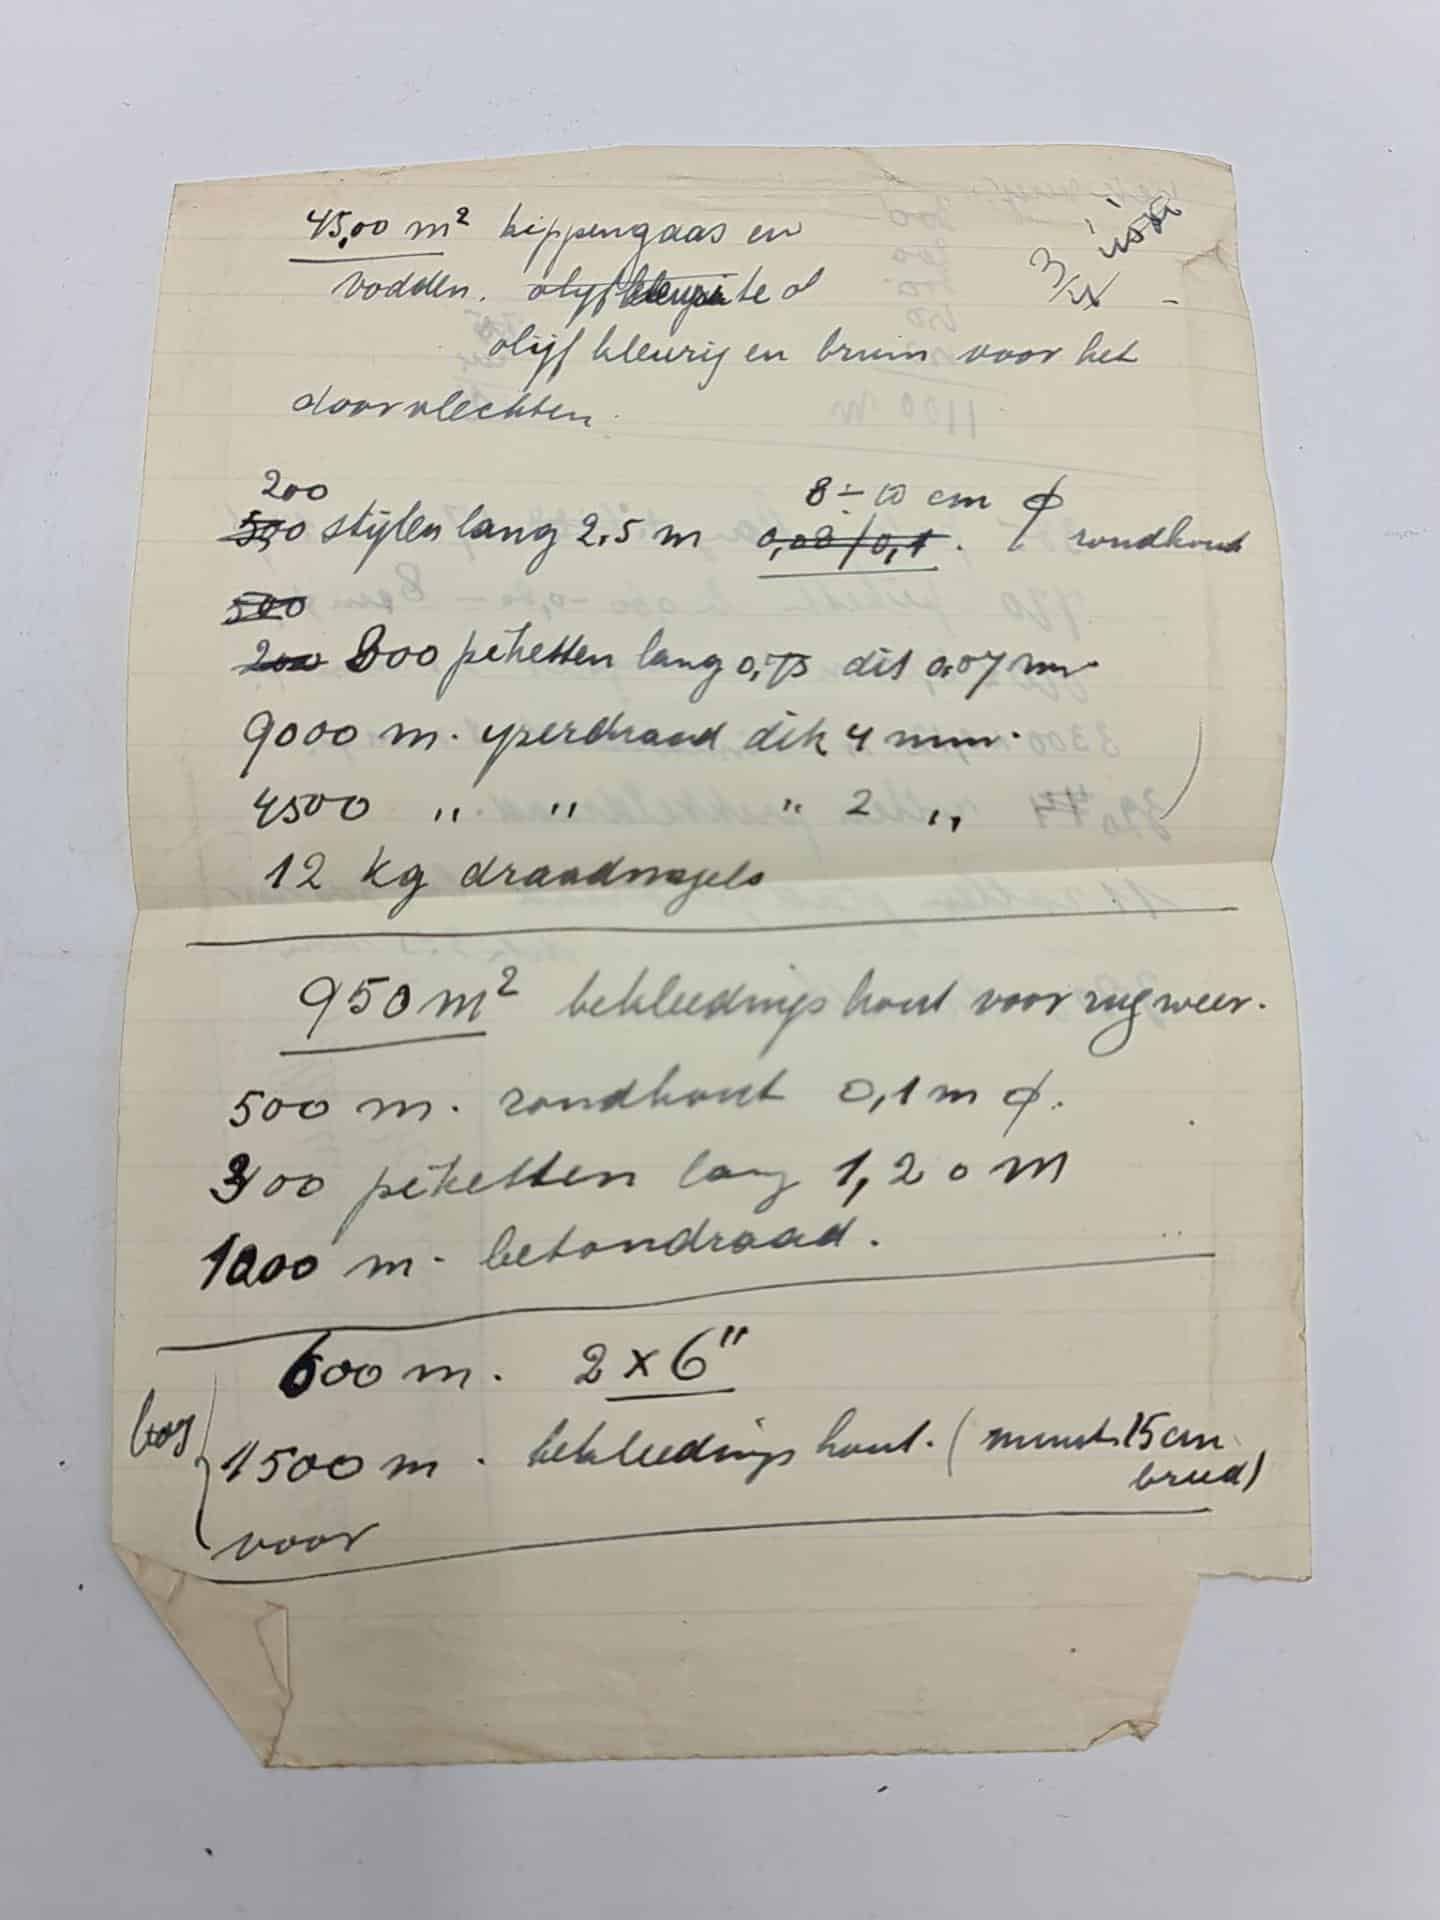 45,00 m² kippengaas en
vodden. olijfkleurig te d
olijfkleurig en bruin voor het
doorvlechten.
200 8 - 10 cm φ
500 stijlen lang 2.5 m 0,08/0,1. rondhout
500
200 800 piketten lang 0,75 dik 0,07 m
9000 m. yzerdraad dik 4 mm.
4500 " " " 2 "
12 kg draadnagels
950 m² bekleedingshout voor rugweer.
500 m. rondhout 0,1 m φ.
300 piketten lang 1,20 m
1000 m. betondraad.
600 m. 2 x 6"
1500 m. bekleedingshout. (minst. 15 cm
breed)
voor